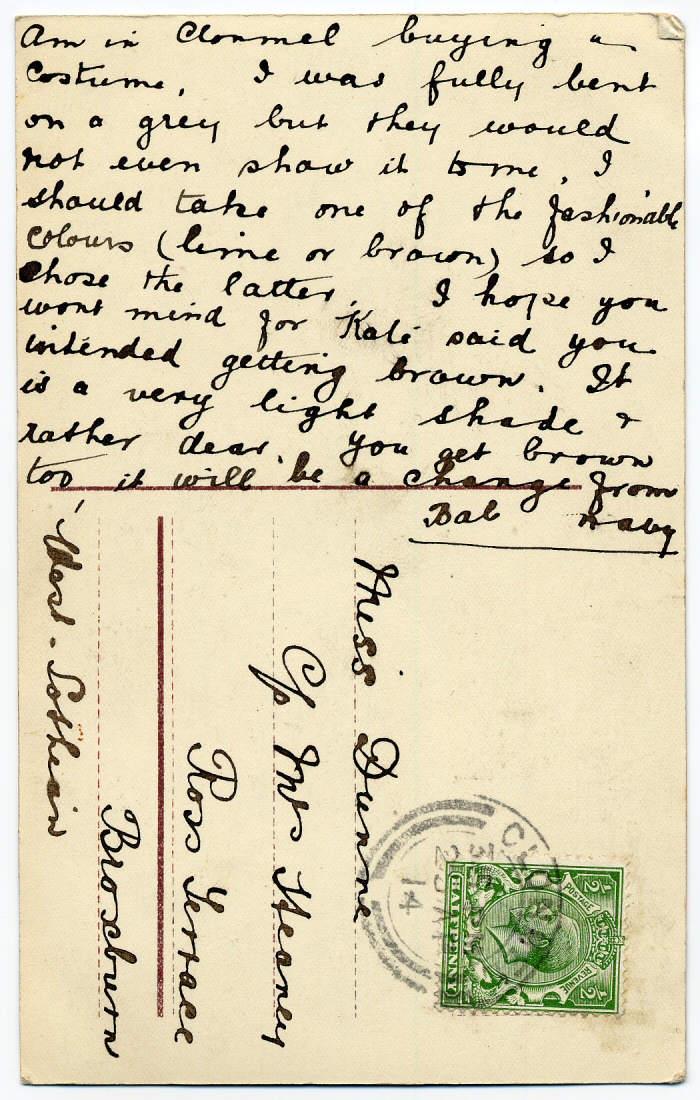 Am in Clonmel buying a
costume. I was fully bent
on a grey but they would
not even show it to me, I
should take one of the fashionable
colours (lime or brown) so I
chose the latter. I hope you
wont mind for Kate said you
intended getting brown. It
is a very light shade &
rather dear. You get brown
too it will be a change from
navy
Bab
Miss Dunne
C/o Mrs Heaney
Ross Terrace
Broxburn
West-Lothian
14
POSTAGE
REVENUE
1/2
1/2
HALFPENNY